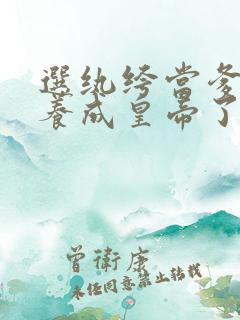 選紈絝當爹
養成皇帝了
曾衛康
未經同意禁止轉載